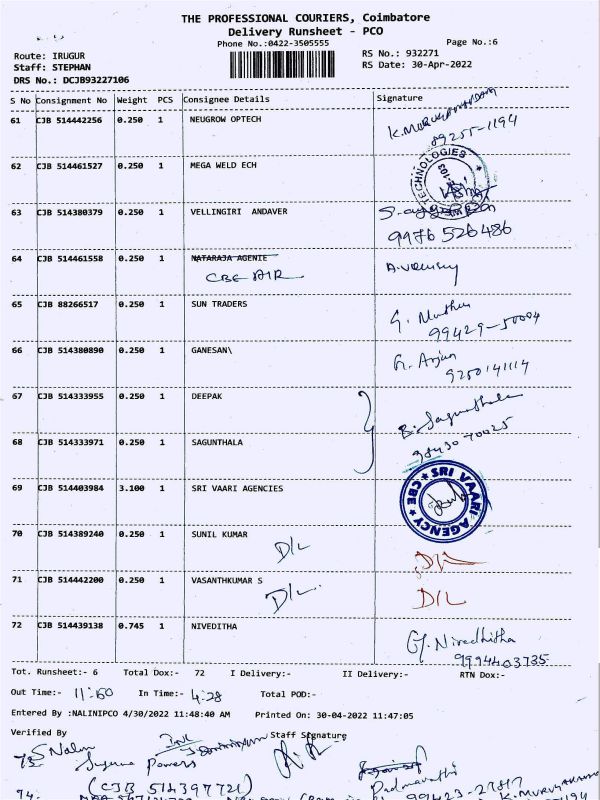 THE PROFESSIONAL COURIERS, Coimbatore
Delivery Runsheet - PCO
Phone No.:0422-3505555
Page No.:6
Route: IRUGUR
Staff: STEPHAN
DRS No.: DCJB93227106
RS No.: 932271
RS Date: 30-Apr-2022
S No Consignment No Weight PCS Consignee Details Signature
61 CJB 514442256 0.250 1 NEUGROW OPTECH
89255-1194
62 CJB 514461527 0.250 1 MEGA WELD ECH
TECHNOLOGIES
63 CJB 514380379 0.250 1 VELLINGIRI ANDAVER
9976 526486
64 CJB 514461558 0.250 1 NATARAJA AGENIE
CBE AIR
65 CJB 88266517 0.250 1 SUN TRADERS
G. Muthu
99429-50004
66 CJB 514380890 0.250 1 GANESAN\
Arjun
9250141114
67 CJB 514333955 0.250 1 DEEPAK
B. Sagunthala
68 CJB 514333971 0.250 1 SAGUNTHALA
98430-70025
69 CJB 514403984 3.100 1 SRI VAARI AGENCIES
SRI VAARI AGENCY CBE
70 CJB 514389240 0.250 1 SUNIL KUMAR
D/L D/L
71 CJB 514442200 0.250 1 VASANTHKUMAR S
D/L. D/L
72 CJB 514439138 0.745 1 NIVEDITHA
G. Nivedhitha
9994403735
Tot. Runsheet:- 6 Total Dox:- 72 I Delivery:- II Delivery:- RTN Dox:-
Out Time:- 11:50 In Time:- 4:28 Total POD:-
Entered By :NALINIPCO 4/30/2022 11:48:40 AM Printed On: 30-04-2022 11:47:05
Verified By Staff Signature
S Nalini
73. Powers
(CJB 514397721)
Padmavathi
99423-27817
74.